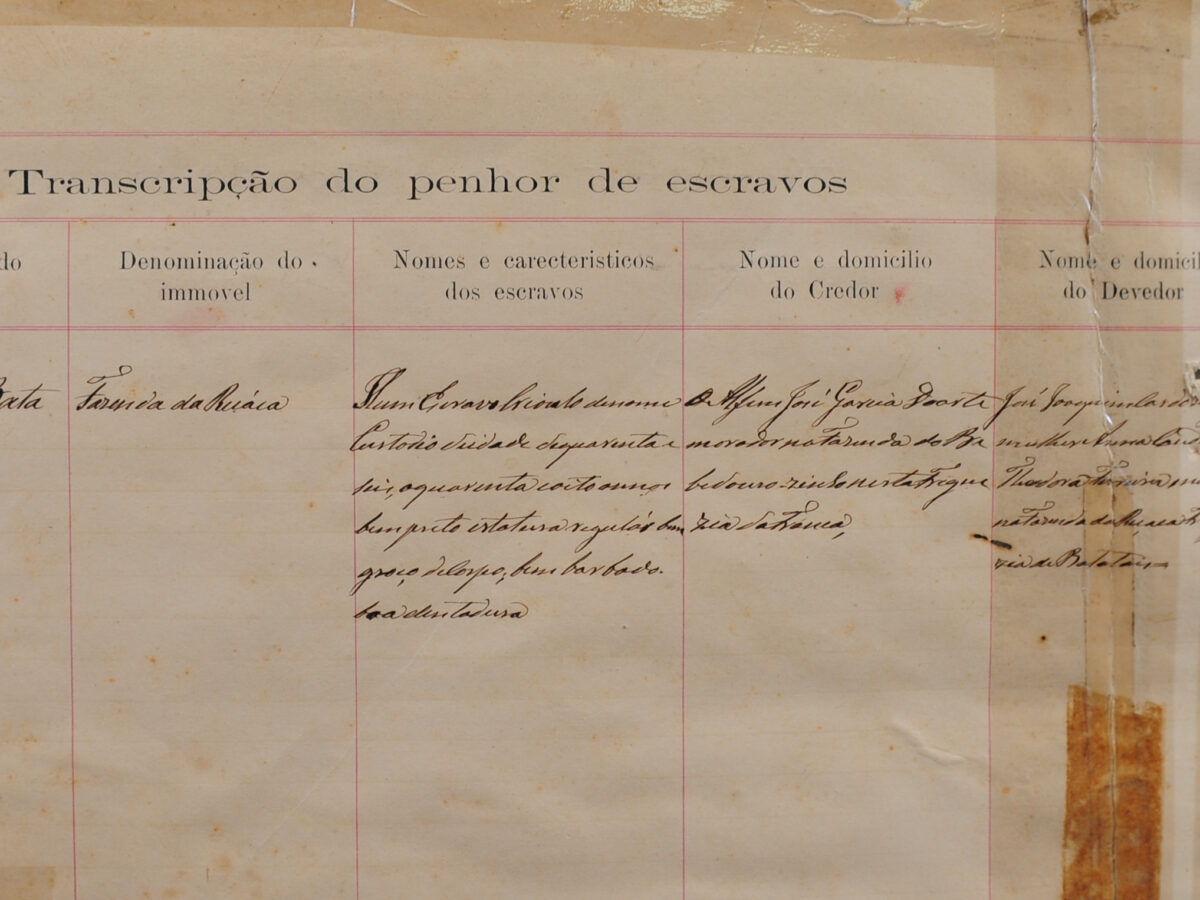 Transcripção do penhor de escravos
do
Denominação do
immovel
Nomes e carecteristicos
dos escravos
Nome e domicilio
do Credor
Nome e domicil
do Devedor
Fazenda da Ruáca
Hum Escravo Crioulo de nome
Custodio de idade de quarenta e
seis, a quarenta e oito annos
bem preto estatura regular bem
groço de Corpo, bem barbado.
boa dentadura
O Alferes José Garcia Doarte
morador na Fazenda do Be
bedouro-zinho nesta Fregue
zia da Franca,
José Joaquim
mulher Anna
Theodora Ferreira
na Fazenda da Ruáca
zia de Batatais